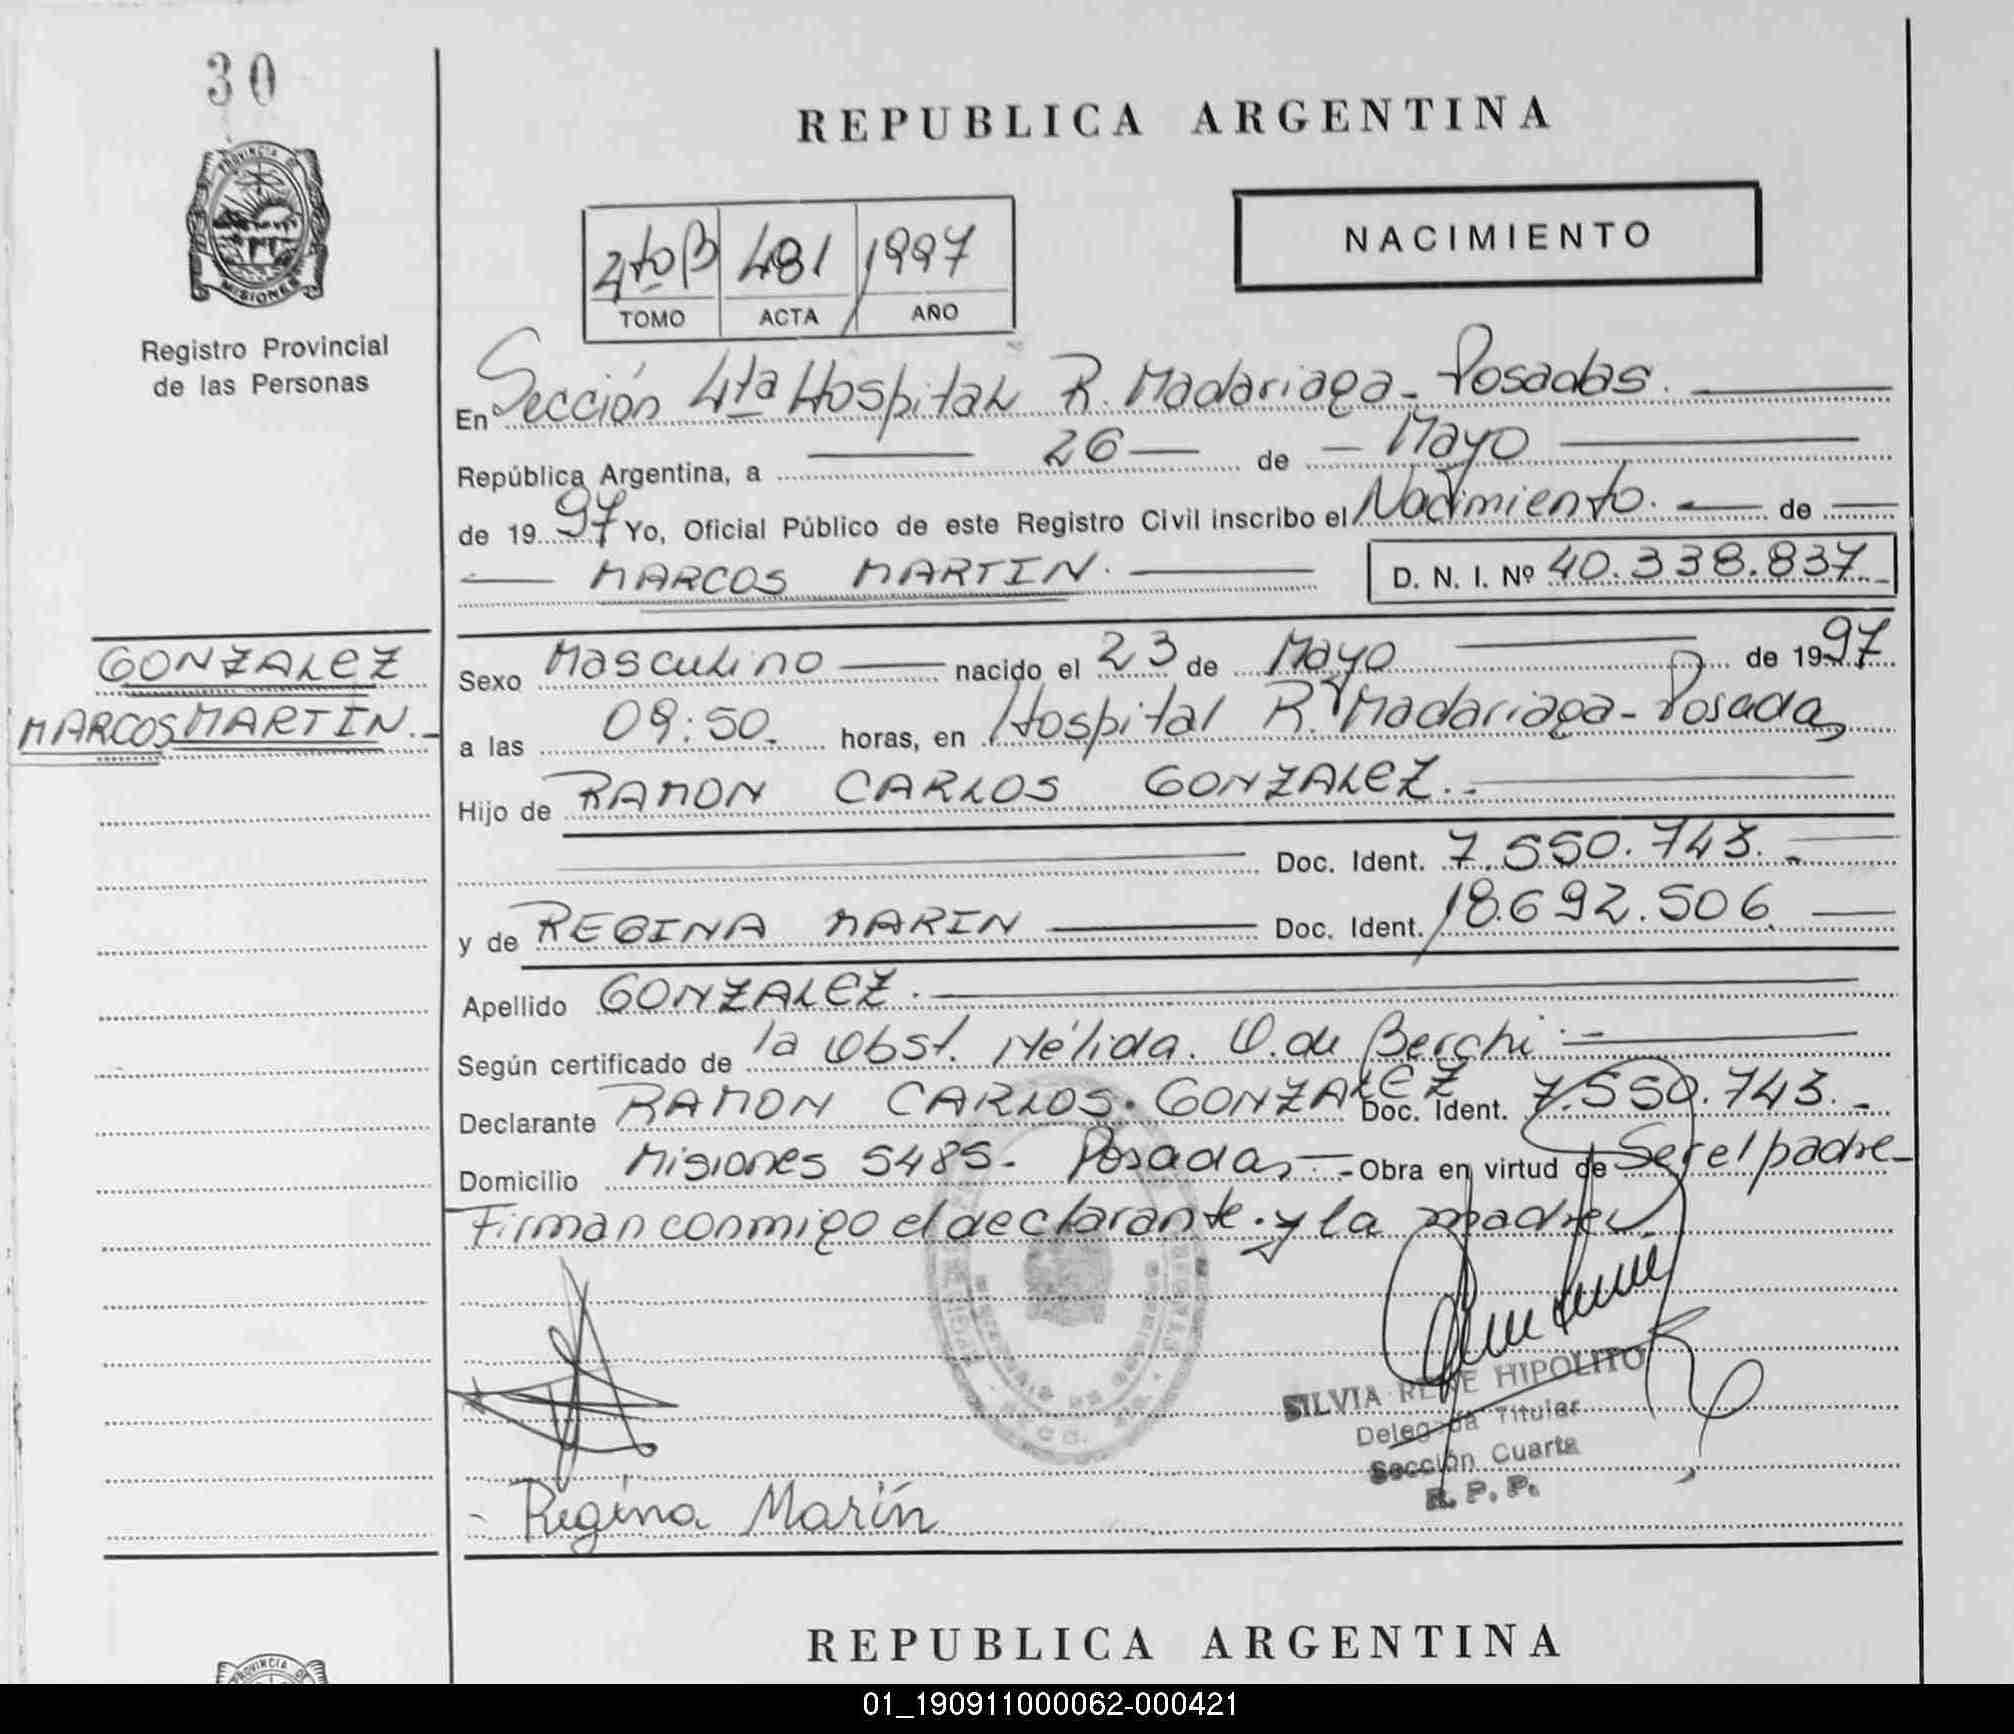 30
PROVINCIA DE
MISIONES
Registro Provincial
de las Personas
REPUBLICA ARGENTINA
4to B 481 1997
TOMO ACTA AÑO
NACIMIENTO
En Sección 4ta Hospital R. Madariaga - Posadas.
República Argentina, a 26 de Mayo
de 1997 Yo, Oficial Público de este Registro Civil inscribo el Nacimiento. de
MARCOS MARTIN. D. N. I. Nº 40.338.837.
GONZALEZ
MARCOS MARTIN.-
Sexo Masculino nacido el 23 de Mayo de 1997
a las 09:50. horas, en Hospital R. Madariaga - Posadas
Hijo de RAMON CARLOS GONZALEZ.-
Doc. Ident. 7.550.743.-
y de REGINA MARIN Doc. Ident. 18.692.506.
Apellido GONZALEZ.
Según certificado de la Obst. Nélida. O. de Berchi.-
Declarante RAMON CARLOS GONZALEZ Doc. Ident. 7.550.743.-
Domicilio Misiones 5485 - Posadas.- Obra en virtud de Ser el padre -
Firman conmigo el declarante. y la madre
SILVIA RENE HIPOLITO
Delegada Titular
Sección Cuarta
R. P. P.
- Regina Marín
REPUBLICA ARGENTINA
PROVINCIA DE
01_190911000062-000421